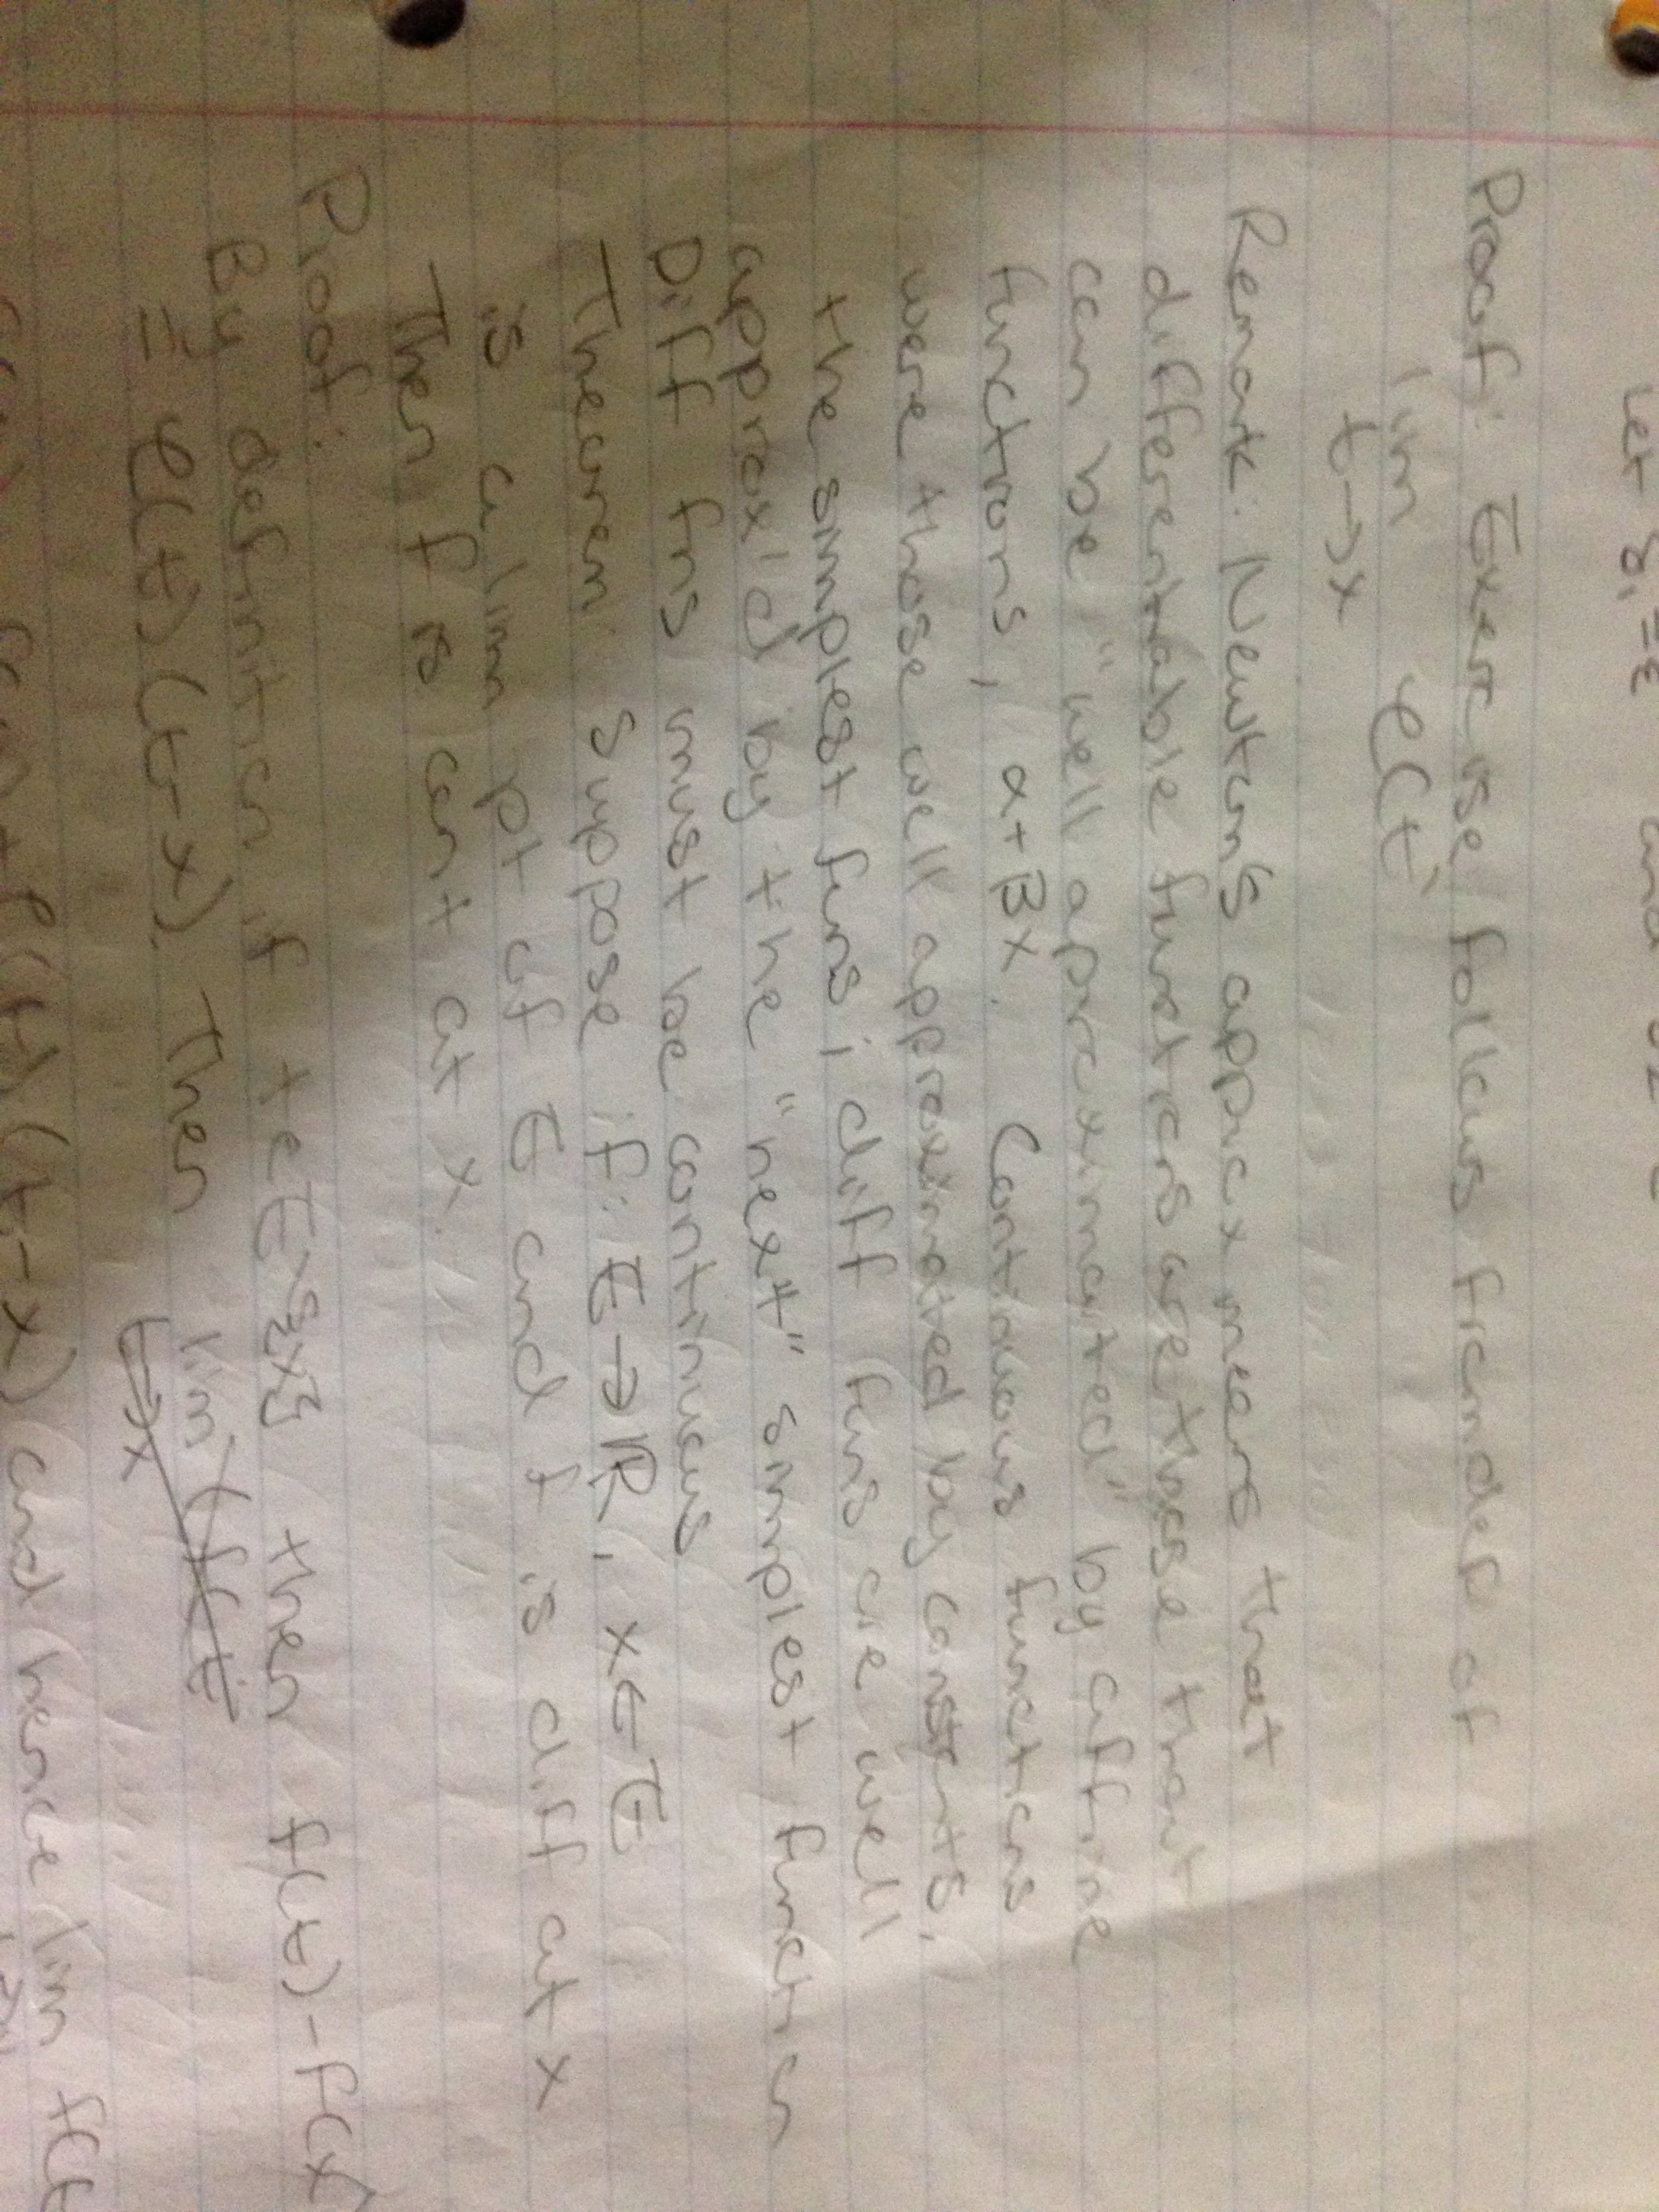 Let δ₁ = ε and
Proof: Exercise follows from def of
lim φ(t)
t→x
Remark: Newton's approx means that
differentiable functions are those that
can be "well aproximated" by affine
functions, α+βx. Continuous functions
were those well approximated by constants,
the simplest funs; diff funs are well
approx'd by the "next" simplest function
Diff fns must be continuous
Theorem: Suppose f: E→ℝ, x∈E
is a lim pt of E and f is diff at x
Then f is cont at x.
Proof:
By definition if t∈E\{x} then f(t)-f(x)
= φ(t)(t-x). Then lim (f(t
t→x
f(t)(t-x) and hence lim f(t